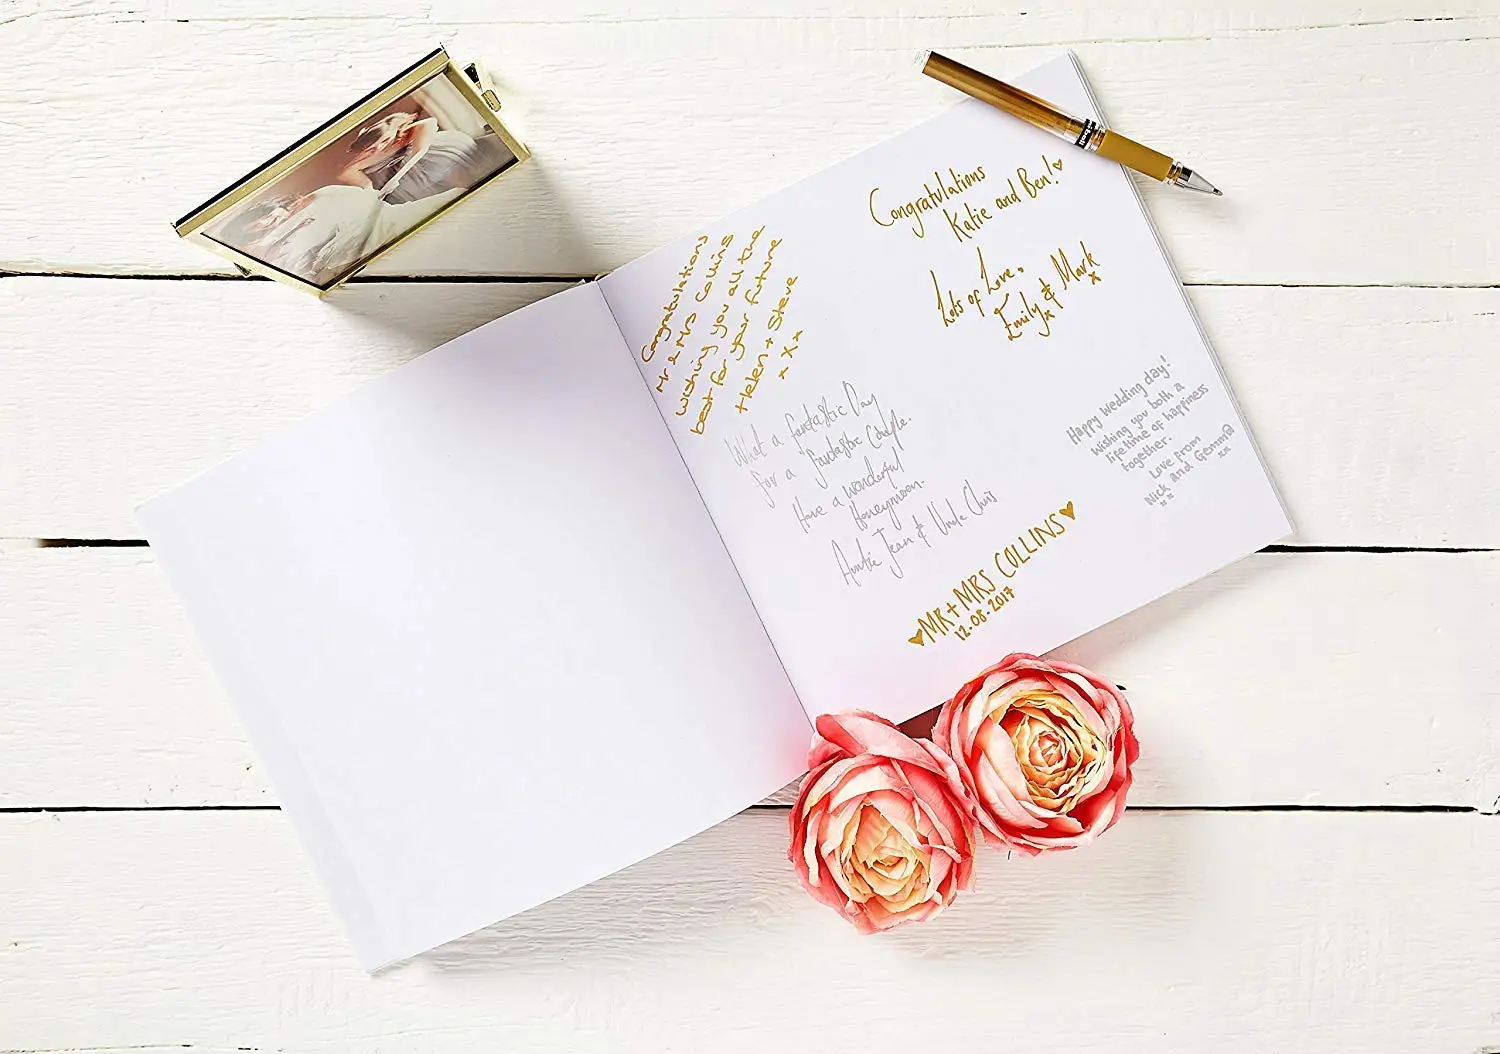 Congratulations
Mr & Mrs Collins
wishing you all the
best for your future
Helen + Steve
x X x
Congratulations
Katie and Ben!
Lots of Love,
Emily & Mark
x x
What a fantastic Day
for a fantastic Couple.
Have a wonderful
Honeymoon.
Auntie Jean & Uncle Chris
Happy Wedding day!
Wishing you both a
lifetime of happiness
together.
Love from
Nick and Gemma
xx xx
MR + MRS COLLINS
12.08.2017